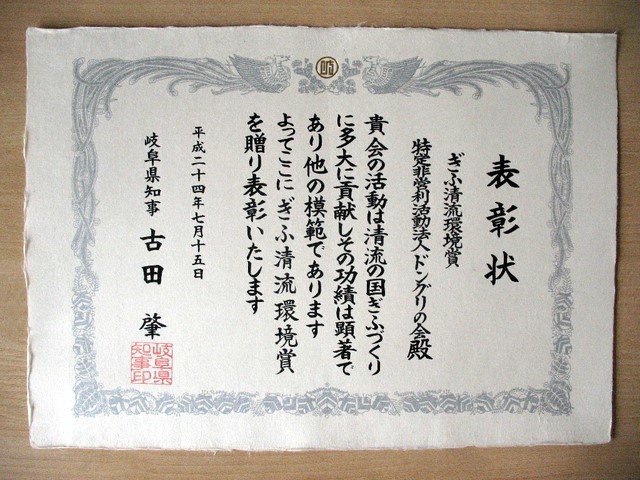 岐
表彰状
ぎふ清流環境賞
特定非営利活動法人ドングリの会殿
貴会の活動は清流の国ぎふづくり
に多大に貢献しその功績は顕著で
あり他の模範であります
よってここにぎふ清流環境賞
を贈り表彰いたします
平成二十四年七月十五日
岐阜県知事 古田 肇
岐阜県
知事印